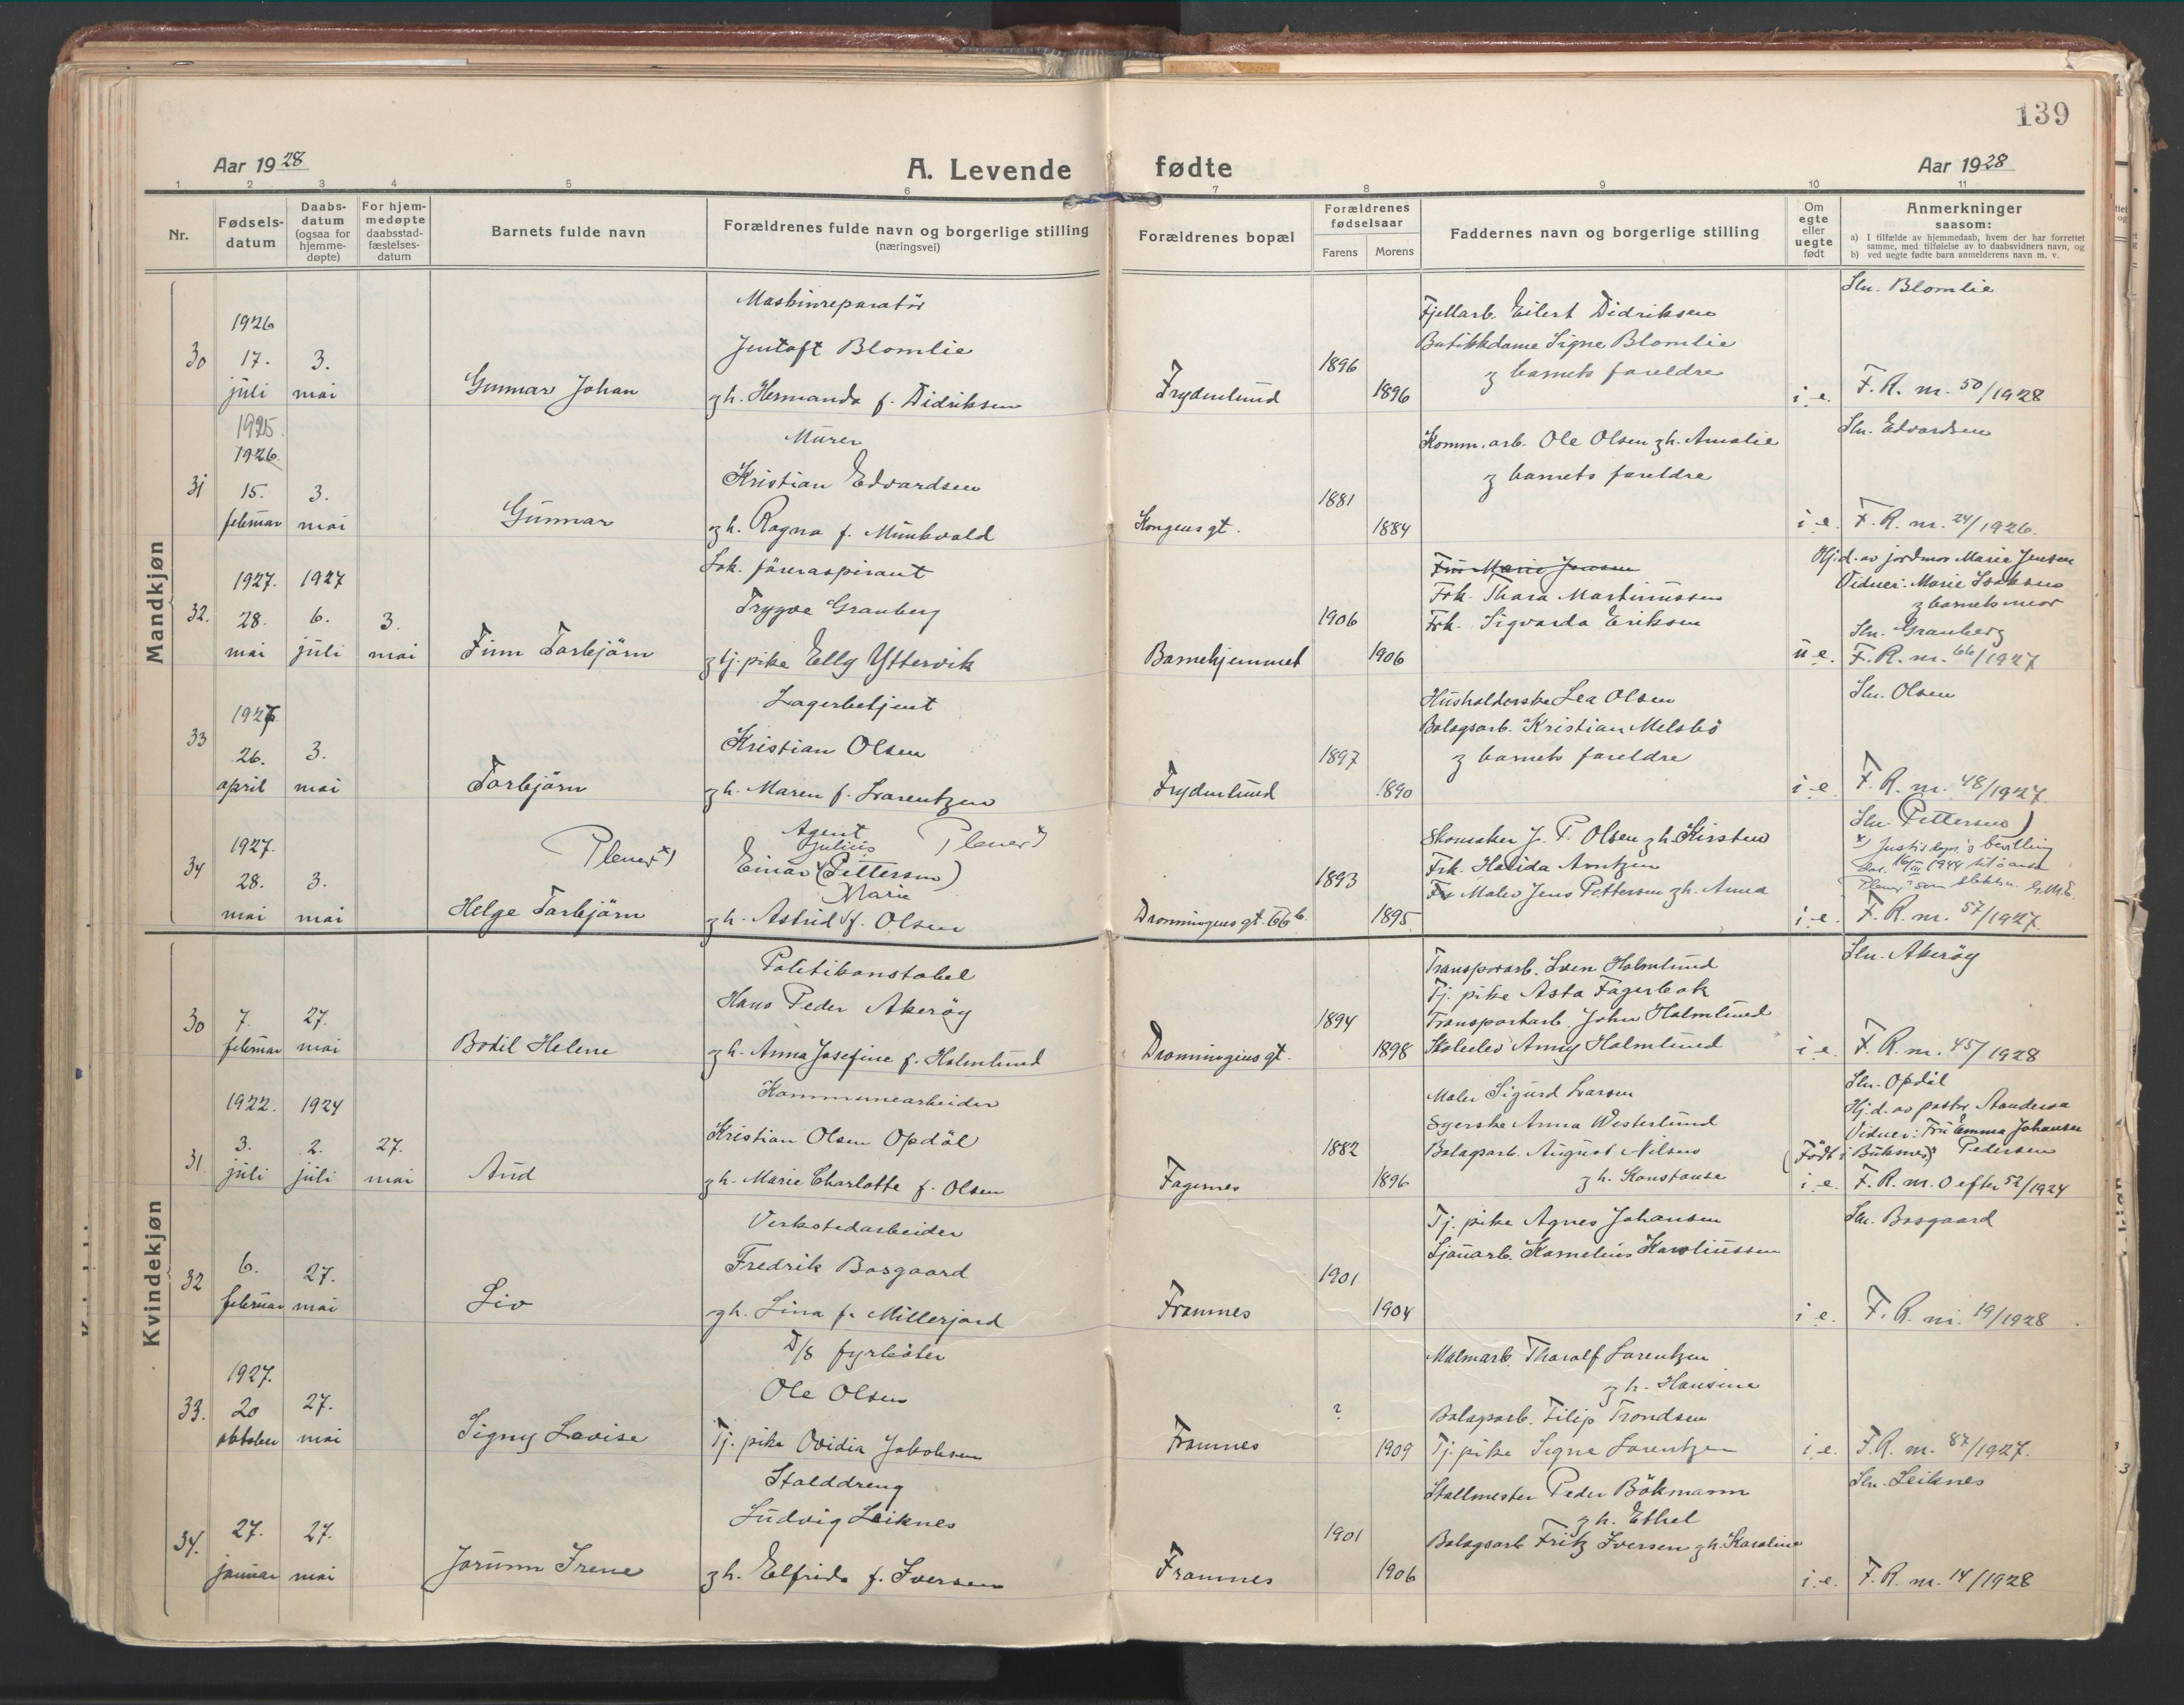 139
Aar 1928
A. Levende fødte
Aar 1928
1 2 3 4 5 6 7 8 9 10 11
Nr.
Fødsels-
datum
Daabs-
datum
(ogsaa for
hjemme-
døpte)
For hjem-
medøpte
daabsstad-
fæstelses-
datum
Barnets fulde navn
Forældrenes fulde navn og borgerlige stilling
(næringsvei)
Forældrenes bopæl
Forældrenes
fødselsaar
Farens Morens
Faddernes navn og borgerlige stilling
Om
egte
eller
uegte
født
Anmerkninger
saasom:
a) I tilfælde av hjemmedaab, hvem der har forrettet
samme, med tilføielse av to daabsvidners navn, og
b) ved uegte fødte barn anmelderens navn m. v.
Mandkjøn
30
1926
17.
juli
3.
mai
Gunnar Johan
Maskinreparatör
Jentoft Blomlie
g h. Hermanda f. Didriksen
Frydenlund
1896
1896
Fjellarb. Eilert Didriksen
Butikkdame Signe Blomlie
g barnets foreldre
i. e.
Sln. Blomlie
F. R. nr. 50/1928
31
1925.
1926.
15.
februar
3.
mai
Gunnar
Murer
Kristian Edvardsen
g h. Ragna f. Munkvold
Kongens gt.
1881
1884
Komm. arb. Ole Olsen g h. Amalie
g barnets foreldre
i. e.
Sln. Edvardsen
F. R. nr. 24/1926.
32.
1927.
28.
mai
1927
6.
juli
3.
mai
Finn Torbjörn
Lok. föreraspirant
Trygve Granberg
g tj. pike Elly Yttervik
Barnehjemmet
1906
1906
Fru Marie Jensen
Frk. Thora Martinussen
Frk. Sigvarda Eriksen
u. e.
Hj. d. av jordmor Marie Jensen
Vidner: Marie Isaksen
g barnets mor
Sln. Granberg
F. R. nr. 66/1927
33
1927
26.
april
3.
mai
Torbjörn
Lagerbetjent
Kristian Olsen
g h. Maren f. Lorentzen
Frydenlund
1897
1890
Husholderske Lea Olsen
Bolagsarb. Kristian Melsbö
g barnets foreldre
i. e.
Sln. Olsen
F. R. nr. 48/1927.
34
1927.
28.
mai
3.
mai
Plener x)
Helge Torbjörn
Agent
Julius
Plener x)
Einar (Pettersen)
Marie
g h. Astrid f. Olsen
Dronningens gt. 66 b.
1893
1895
Skomaker J. P. Olsen g h. Kirsten
Frk. Halida Arntzen
Maler Jens Pettersen g h. Anna
i. e.
Sln. Pettersen)
x) Justisdep.'s bevilling
1944 til å anta
"Plener" som slektsn.
F. R. nr. 57/1927.
Kvindekjøn
30
7.
februar
27.
mai
Bodil Helene
Politikonstabel
Hans Peder Akeröy
g h. Anna Josefine f. Holmlund
Dronningens gt.
1894
1898
Transportarb. Sven Holmlund
Tj. pike Asta Fagerbak
Transportarb. John Holmlund
Skoleelev Anny Holmlund
i. e.
Sln. Akeröy
F. R. nr. 45/1928
31.
1922.
3.
juli
1924
2.
juli
27.
mai
Aud
Kommunearbeider
Kristian Olsen Opdöl
g h. Marie Charlotte f. Olsen
Fagernes
1882
1896
Maler Sigurd Larsen
Syerske Anna Westerlund
Bolagsarb. August Nilsen
g h. Konstanse
(Födt i Buksnes)
i. e.
Sln. Opdöl
Hj. d. av pastor
Vidner: Fru Emma Johansen
Pedersen
F. R. nr. 0 efter 52/1924
32
6.
februar
27.
mai
Liv
Verkstedarbeider
Fredrik Bosgaard
g h. Lina f. Millerjord
Framnes
1901
1904
Tj. pike Agnes Johansen
Sjöuarb. Kornelius Karoliussen
i. e.
Sln. Bosgaard
F. R. nr. 19/1928
33.
1927.
20
oktober
27.
mai
Signy Lovise
D/S fyrböter
Ole Olsen
Tj. pike Ovidia Jakobsen
Framnes
?
1909
Malmarb. Tharalf Lorentzen
g h. Hansine
Bolagsarb. Filip Trondsen
Tj. pike Signe Lorentzen
i. e.
F. R. nr. 87/1927.
34.
27.
januar
27.
mai
Jorunn Irene
Stalddreng
Ludvig Leiknes
g h. Elfrida f. Iversen
Framnes
1901
1906
Stallmester Peder Bökmann
g h. Ethel
Bolagsarb Fritz Iversen g h. Karoline
i. e.
Sln. Leiknes
F. R. nr. 14/1928